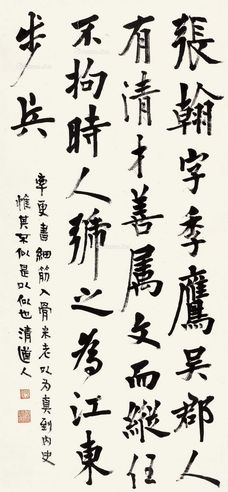 張翰字季鷹吳郡人
有清才善属文而縱任
不拘時人號之為江東
步兵
率更書細筋入骨米老以為真到內史
惟其不似是以似也清道人